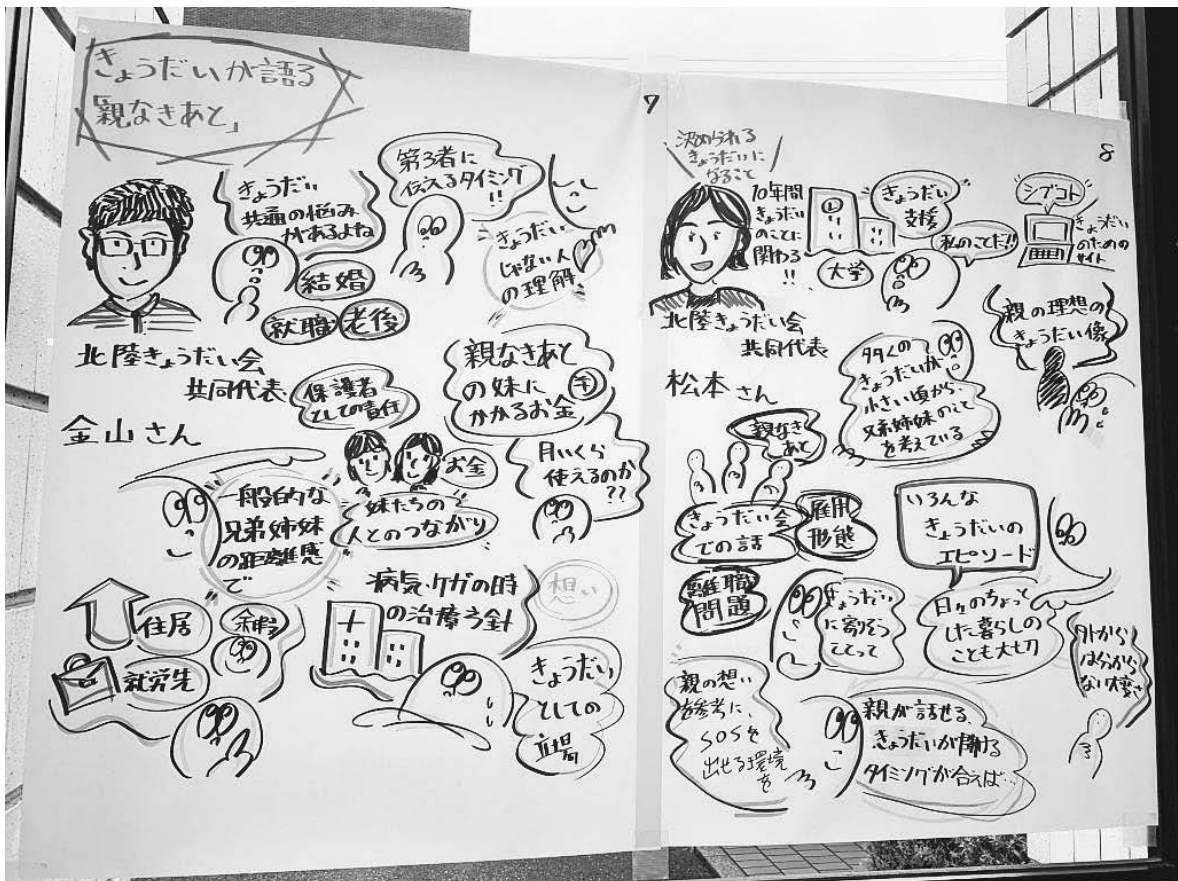 きょうだいが語る
「親なきあと」
7
きょうだい
共通の悩み
があるよね
結婚
就職
老後
第3者に
伝えるタイミング
!!
きょうだい
じゃない人
の理解
北陸きょうだい会
共同代表
金山さん
保護者
としての責任
親なきあと
の妹に
かかるお金
お金
月いくら
使えるのか
??
一般的な
兄弟姉妹
の距離感
で
妹たちの
人とのつながり
住居
余暇
就労先
病気・ケガの時
の治療方針
想い
きょうだい
としての
立場
8
決められる
きょうだいに
なること
10年間
きょうだい
のことに
関わる
!!
大学
きょうだい
支援
私のことだ!!
シブコト
きょうだい
のための
サイト
北陸きょうだい会
共同代表
松本さん
多くの
きょうだいが
小さい頃から、
兄弟姉妹のこと
を考えている
親の理想の
きょうだい像
親なき
あと
きょうだい会
での話
雇用
形態
離職
問題
いろんな
きょうだいの
エピソード
きょうだい
に寄りそう
ってて
日々のちょっと
した暮らしの
ことも大切
外から
は分から
ない大変さ
親の想い
を参考に、
SOSを
出せる環境
を
親が話せる、
きょうだいが聞ける
タイミングが合えば…